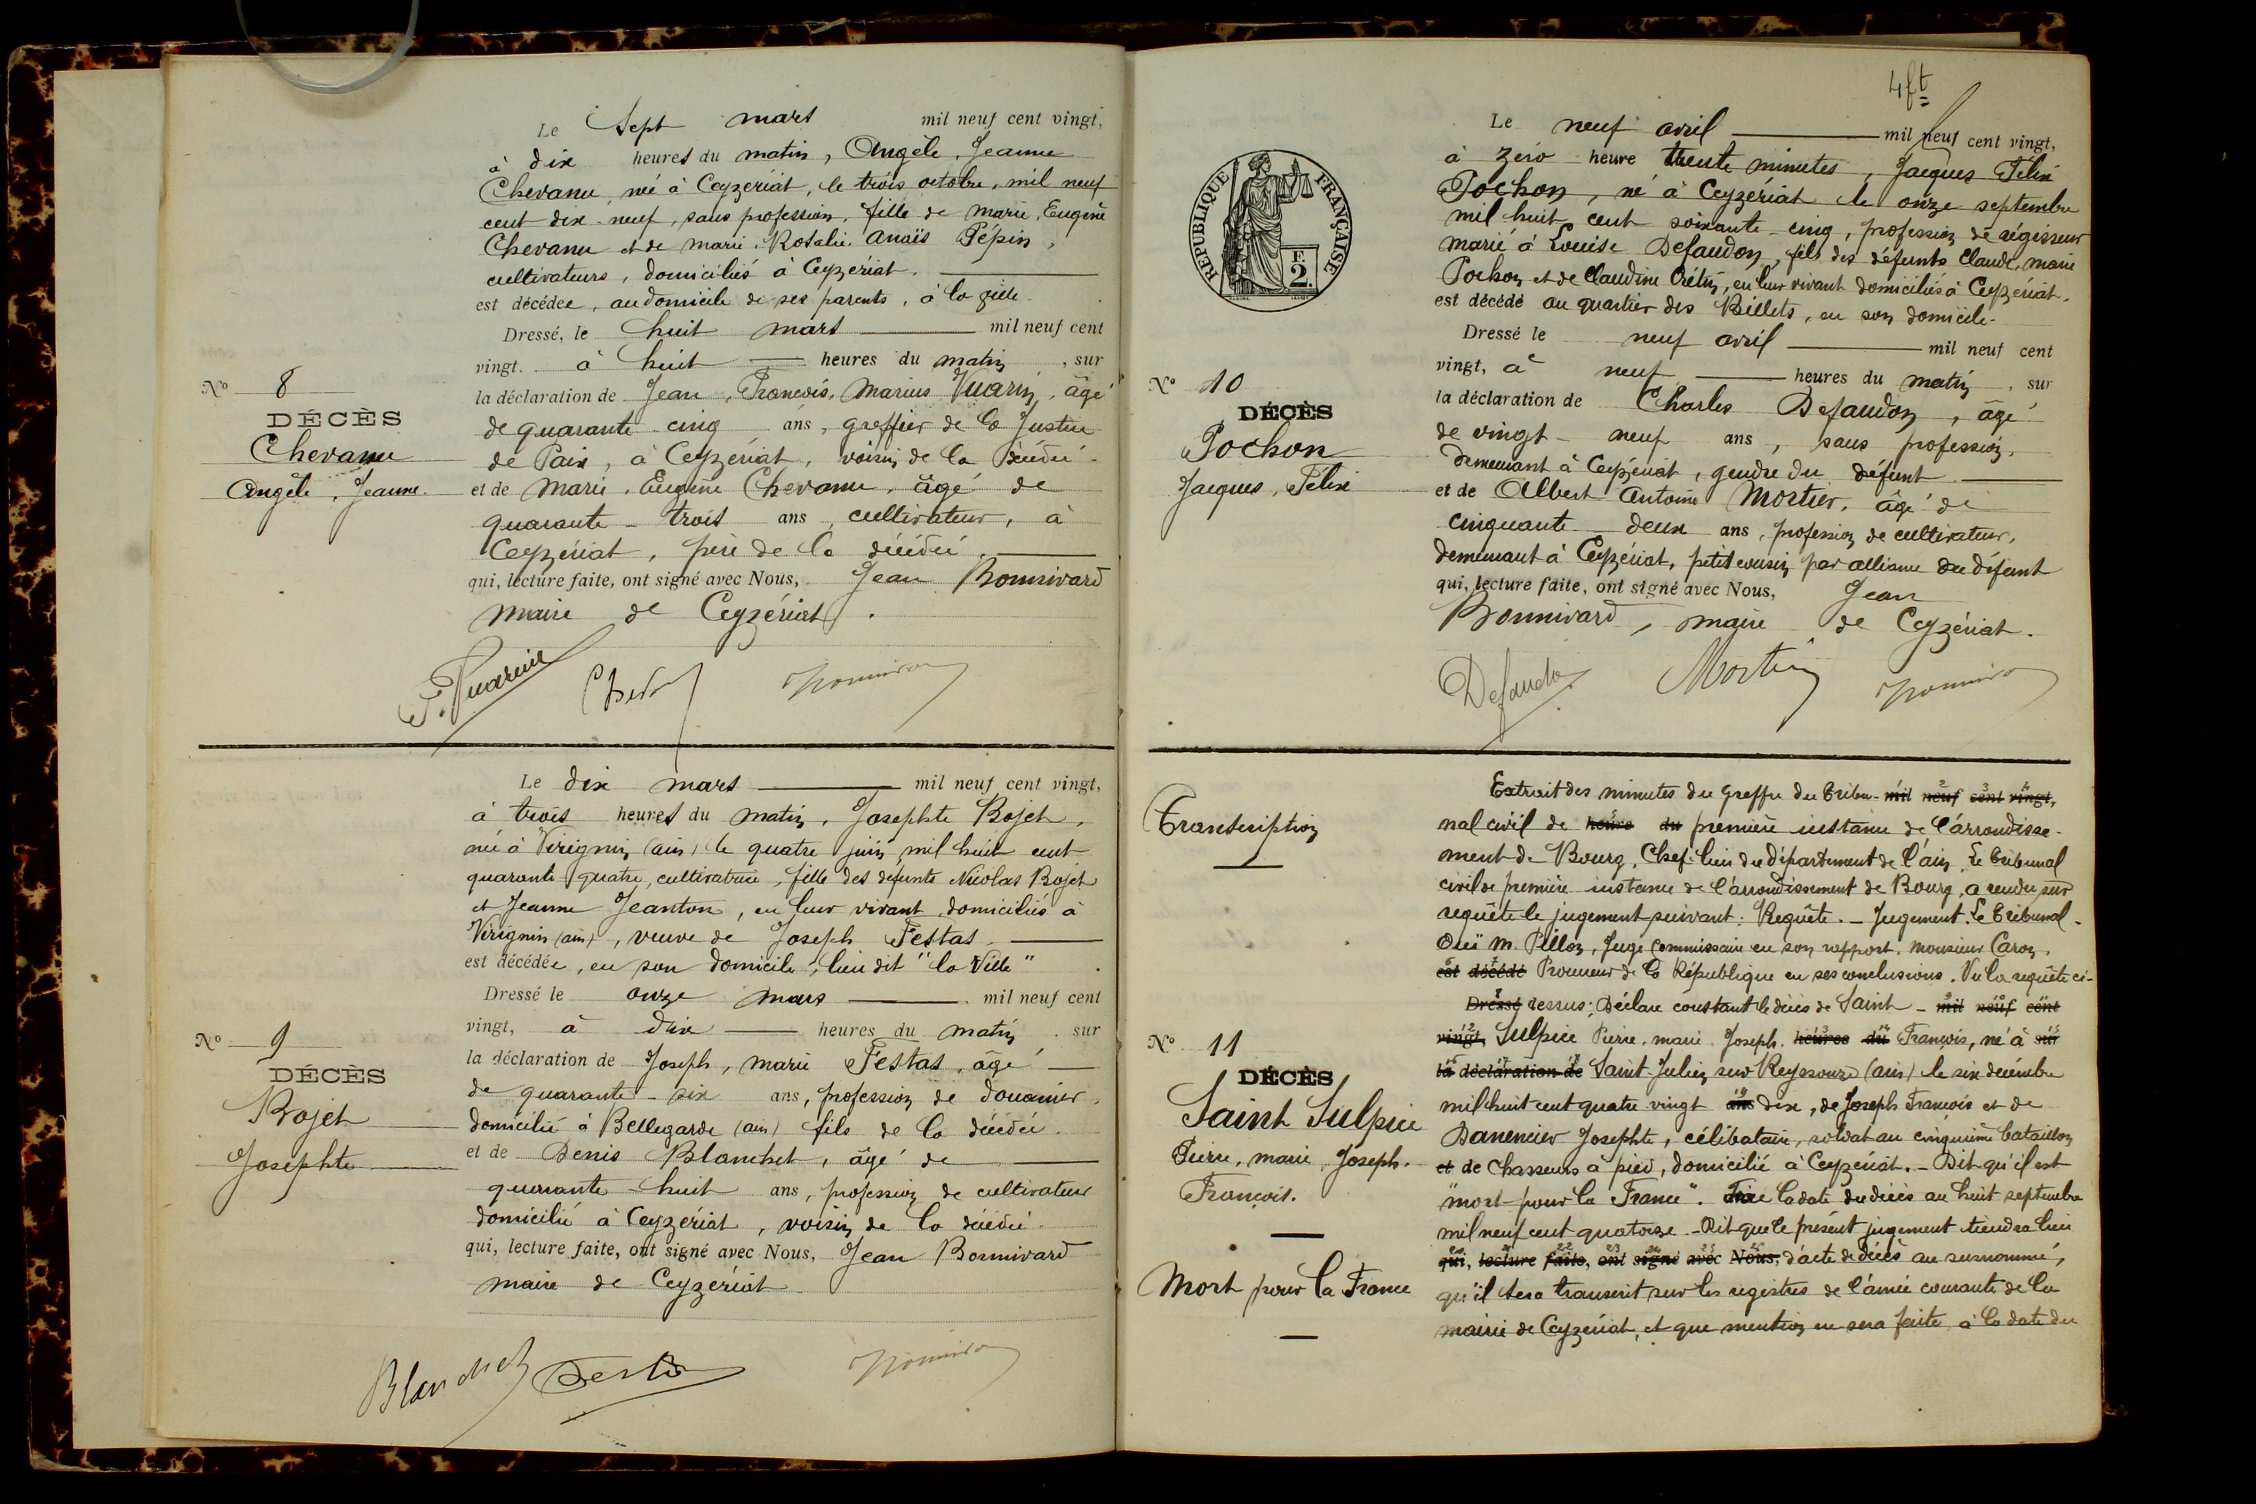 Le Sept mars mil neuf cent vingt,
à dix heures du matin, Angèle, Jeanne
Chevanu, née à Ceyzériat, le trois octobre, mil neuf
cent dix-neuf, sans profession, fille de Marie, Eugène
Chevanu et de Marie, Rosalie, Anaïs Pépin,
cultivateurs, domiciliés à Ceyzériat.
est décédée, au domicile de ses parents, à la ville
Dressé, le huit mars mil neuf cent
vingt. à huit heures du matin, sur
la déclaration de Jean, François, Marius Vuarin, âgé
de quarante-cinq ans, greffier de la Justice
de Paix, à Ceyzériat, voisin de la décédée
et de Marie, Eugène Chevanu, âgé de
quarante-trois ans, cultivateur, à
Ceyzériat, père de la décédée.
qui, lecture faite, ont signé avec Nous, Jean Bonnivard
maire de Ceyzériat.
N° 8
DÉCÈS
Chevanu
Angèle, Jeanne.
F. Vuarin
Le dix mars mil neuf cent vingt,
à trois heures du matin, Josephte Bojet,
née à Virignin (ain) le quatre juin mil huit cent
quarante-quatre, cultivatrice, fille des défunts Nicolas Bojet
et Jeanne Jeanton, en leur vivant domiciliés à
Virignin (ain), veuve de Joseph Festas
est décédée, en son domicile, lieu dit "la Ville"
Dressé le onze mars mil neuf cent
vingt, à dix heures du matin sur
la déclaration de Joseph, Marie Festas, âgé
de quarante-six ans, profession de douanier,
domicilié à Bellegarde (ain) fils de la décédée
et de Denis Blanchet, âgé de
quarante-huit ans, profession de cultivateur
domicilié à Ceyzériat, voisin de la décédée
qui, lecture faite, ont signé avec Nous, Jean Bonnivard
maire de Ceyzériat
N° 9
DÉCÈS
Bojet
Josephte
Blanchet
4 ft
RÉPUBLIQUE FRANÇAISE
F.
2.
Le neuf avril mil neuf cent vingt,
à zéro heure trente minutes, Jacques Félix
Pochon, né à Ceyzériat le onze septembre
mil huit cent soixante-cinq, profession de régisseur
marié à Louise Defaudon, fils des défunts Claude, Marie
Pochon et de Claudine Crétin, en leur vivant domiciliés à Ceyzériat.
est décédé au quartier des Billets, en son domicile.
Dressé le neuf avril mil neuf cent
vingt, à neuf heures du matin, sur
la déclaration de Charles Defaudon, âgé
de vingt-neuf ans, sans profession,
demeurant à Ceyzériat, gendre du défunt
et de Albert Antoine Mortier, âgé de
cinquante-deux ans, profession de cultivateur,
demeurant à Ceyzériat, petit cousin par alliance du défunt
qui, lecture faite, ont signé avec Nous, Jean
Bonnivard, maire de Ceyzériat.
N° 10
DÉCÈS
Pochon
Jacques, Félix
Defaudo
Mortier
Transcription
Extrait des minutes du Greffe du Tribu- mil neuf cent vingt,
nal civil de heure du première instance de l'arrondisse-
ment de Bourg, Chef-lieu du département de l'ain. Le Tribunal
civil de première instance de l'arrondissement de Bourg, a rendu sur
requête le jugement suivant: Requête. - Jugement. Le Tribunal -
Ouï M. Pillon, Juge Commissaire en son rapport. Monsieur Caron,
est décédé Procureur de la République en ses conclusions. Vu la requête ci-
Dressé dessus; Déclare constant le décès de Saint - mil neuf cent
vingt, Sulpice Pierre, Marie Joseph, heures du François, né à sur
la déclaration de Saint Julien sur Reyssouze (ain) le six décembre
mil huit cent quatre vingt ans dix, de Joseph François et de
Danencier Josephte, célibataire, soldat au cinquième bataillon
et de Chasseurs à pied, domicilié à Ceyzériat. - Dit qu'il est
"mort pour la France". Fixe la date du décès au huit septembre
mil neuf cent quatorze - Dit que le présent jugement tiendra lieu
qui, lecture faite, ont signé avec Nous, d'acte de décès au susnommé,
qu'il sera transcrit sur les registres de l'année courante de la
mairie de Ceyzériat, et que mention en sera faite à la date du
N° 11
DÉCÈS
Saint Sulpice
Pierre, Marie, Joseph.
François.
Mort pour la France